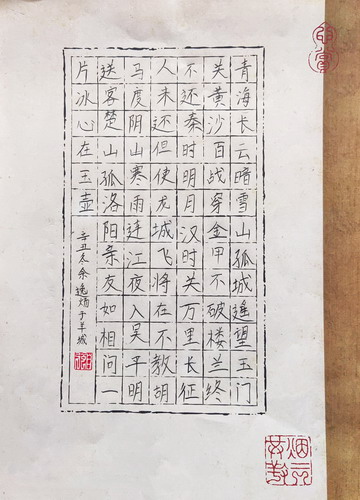 青海长云暗雪山孤城遥望玉门
关黄沙百战穿金甲不破楼兰终
不还秦时明月汉时关万里长征
人未还但使龙城飞将在不教胡
马度阴山寒雨连江夜入吴平明
送客楚山孤洛阳亲友如相问一
片冰心在玉壶
辛丑冬余逸于羊城